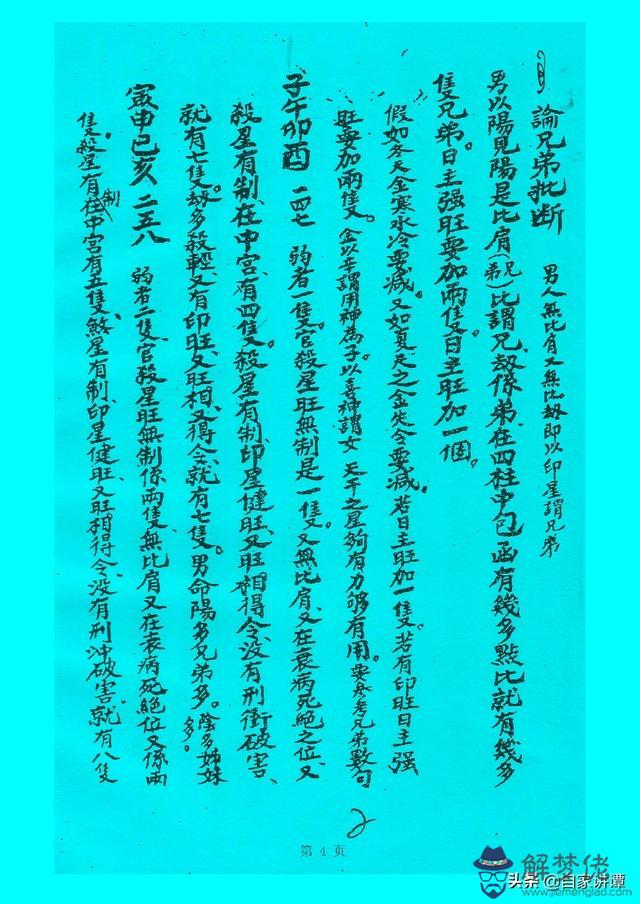 論兄弟批断 男人無比肩又無比劫即以印星謂兄弟
男以陽見陽是比肩(兄弟)比謂兄、劫係弟、在四柱中包函有幾多點比就有幾多
隻兄弟。日主强旺要加兩隻、日主旺加一個。
假如冬天金寒水冷要減。又如夏天之金失令要減、若日主旺加一隻。若有印旺日主强
旺要加兩隻。金以辛謂用神為子以喜神謂女 天干之星夠有力够有用。要参考兄弟數句
子午卯酉 一四七 弱者一隻。官殺星旺無制是一隻。又無比肩、又在衰病死絕之位、又
殺星有制、在中宮、有四隻。殺星有制、印星健旺、又旺相得令、没有刑衝破害、
就有七隻。劫多殺輕、又有印旺、又旺相、又得令、就有七隻。男命陽多兄弟多。陰多姊妹
多。
寅申巳亥 二五八 弱者二隻、官殺星旺無制係兩隻、無比肩又在衰病死絕位又係兩
隻、殺星有制在中宮有五隻、煞星有制、印星健旺、又旺相得令、没有刑冲破害、就有八隻
2
第 4 页
解梦佬
www.jiemenglao.com
头条 @自家讲谭